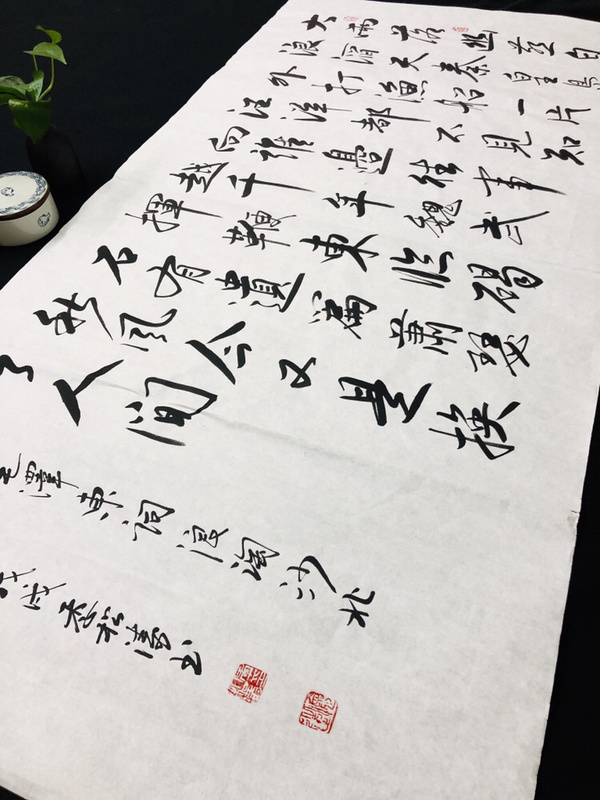 大雨落幽燕白
浪滔天秦皇島
外打漁船一片
汪洋都不見知
向誰邊往事
越千年魏武
揮鞭東臨碣
石有遺篇蕭瑟
秋風今又是換
了人間
毛澤東詞浪淘沙北
戊戌書